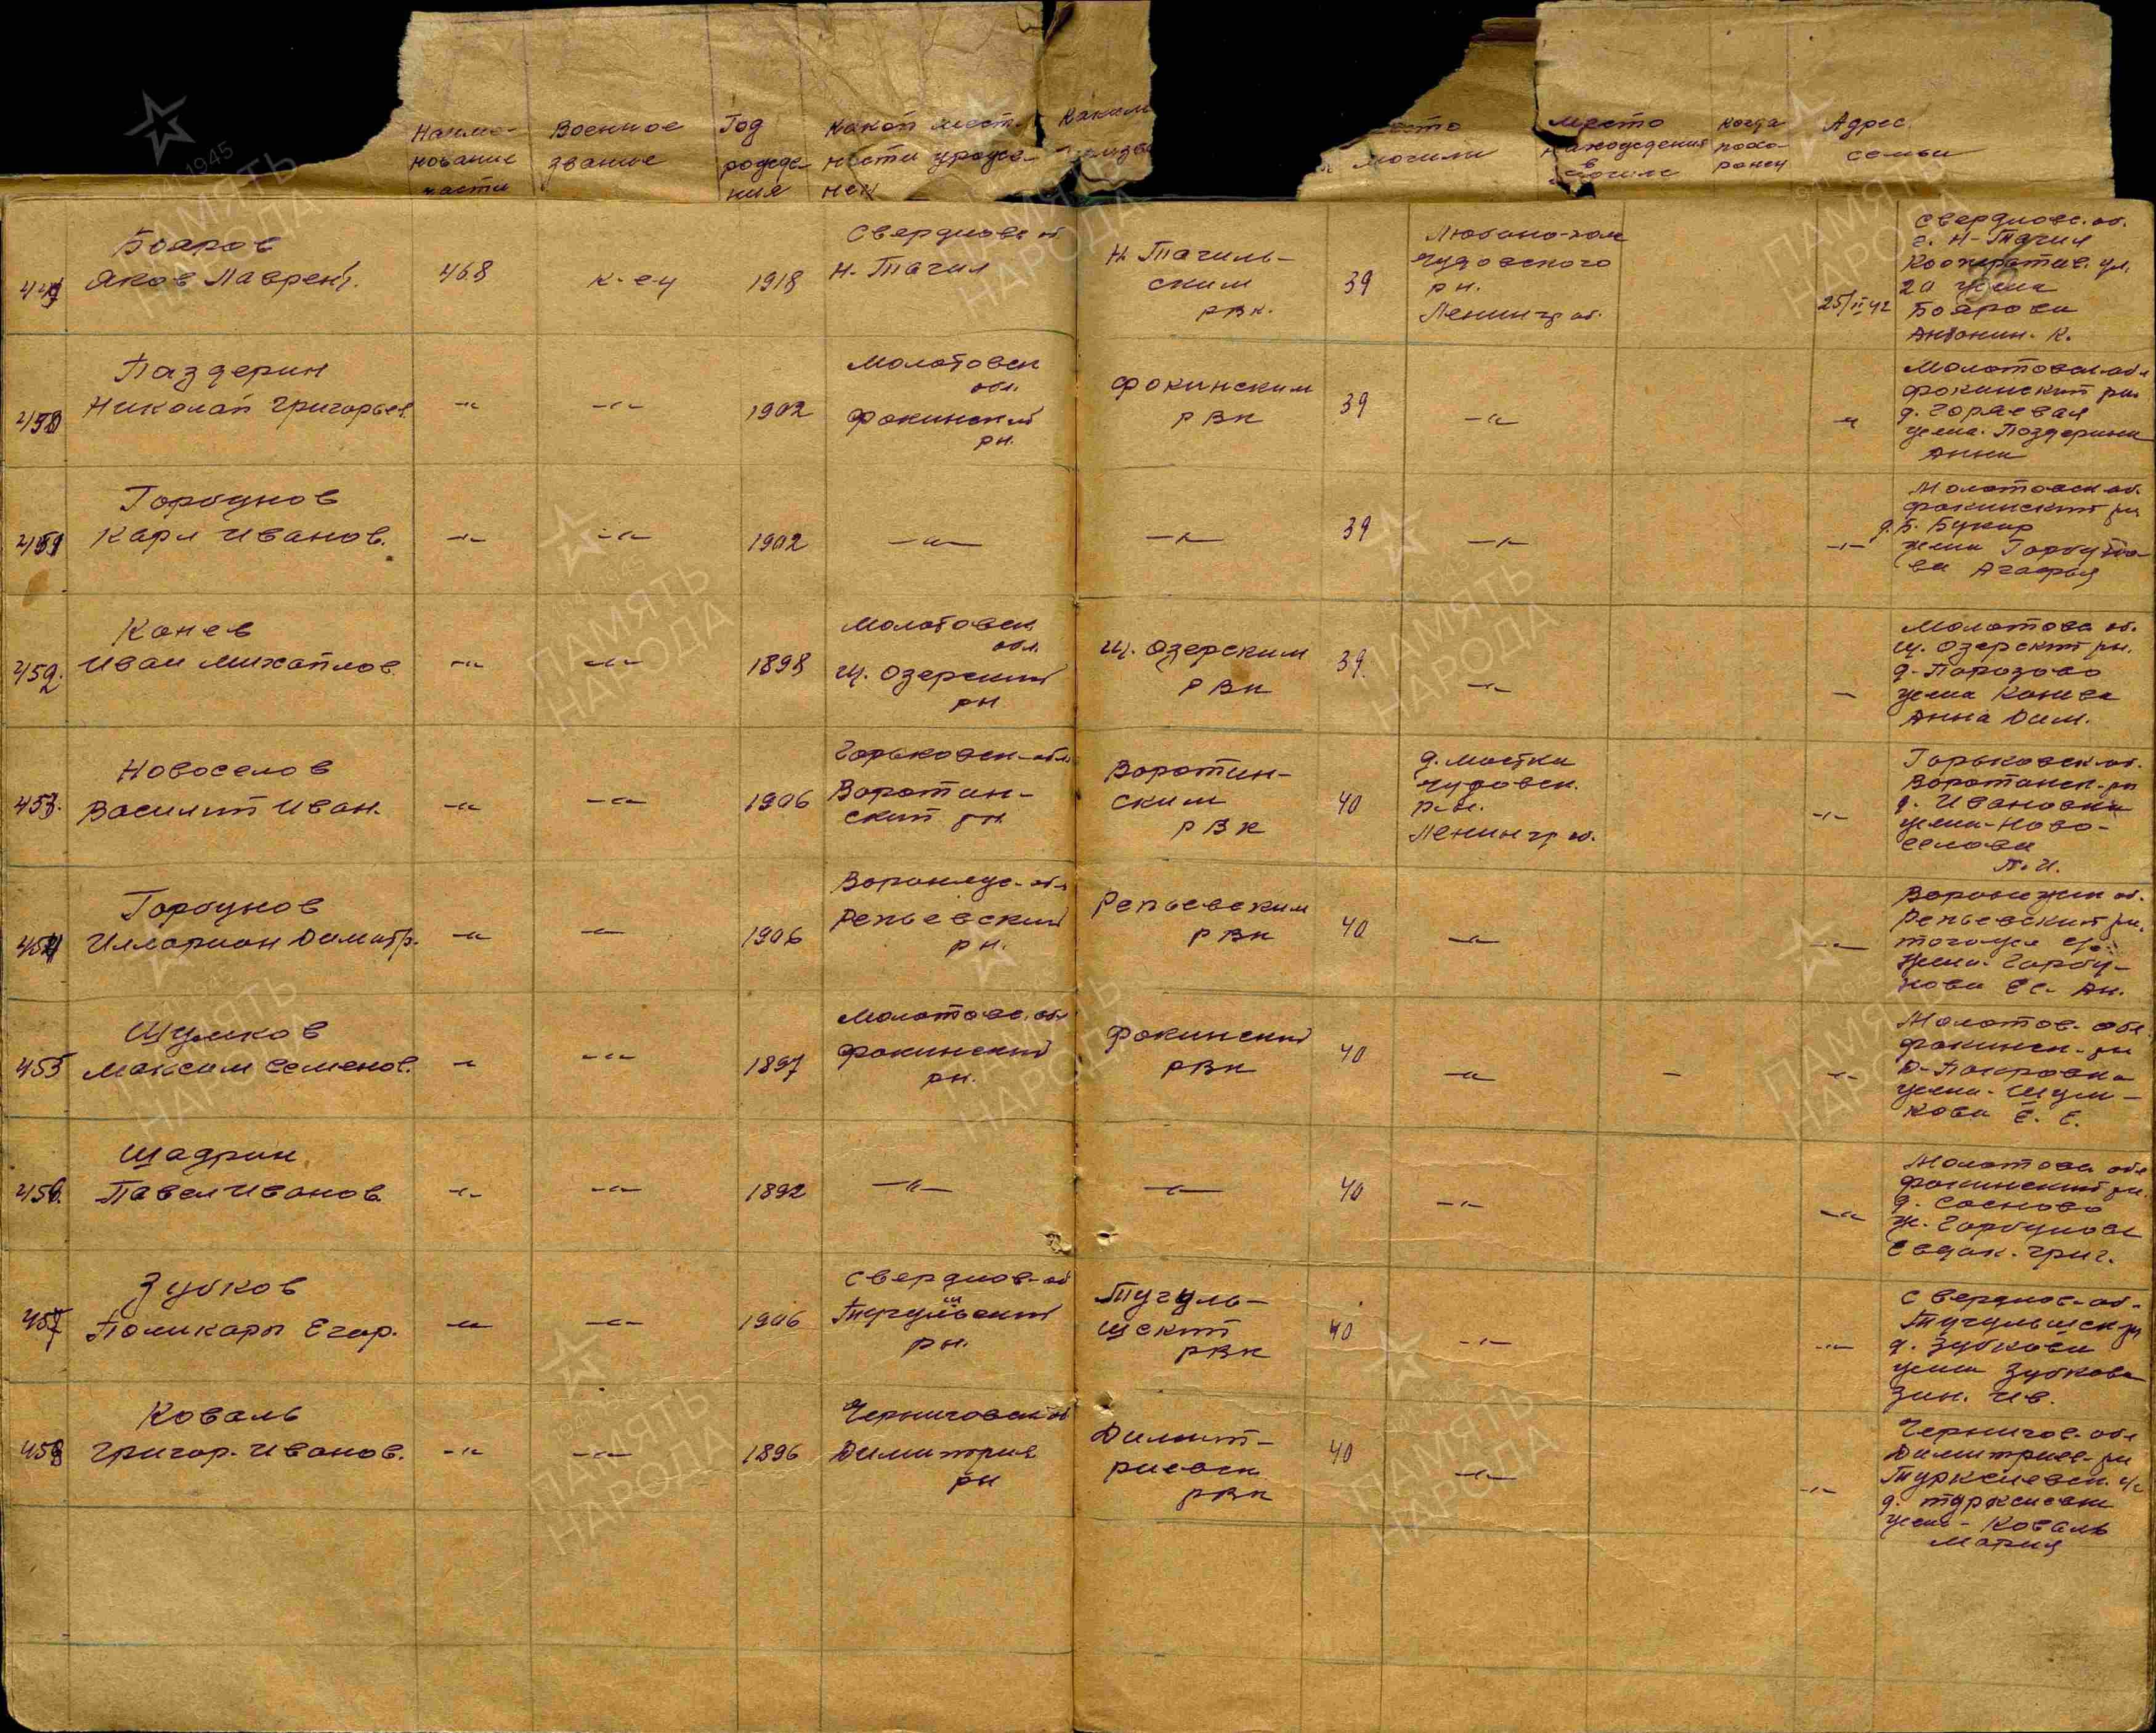 Наиме-
нование
части
Военное
звание
Год
рожде-
ния
Какой мест-
ности уроже-
нец
Каким
место
могили
место
нахождения
в
могиле
когда
похо-
ронен
Адрес
семьи
449
Бояров
Яков Лаврент.
468
к-ец
1918
Свердловс. об.
Н. Тагил
Н. Тагиль-
ским
РВК.
39
Любино-поле
Чудовского
рн.
Ленингр об.
25/II 42
Свердловс. об.
г. Н-Тагил
Кооператив. ул.
20 жена
Боярова
Антонин. К.
450
Паздерин
Николай Григорьев.
-"-
-"-
1902
Молотовск
обл.
Фокинский
рн.
Фокинским
РВК
39
-"-
-"-
Молотовск обл
Фокинский рн.
д. Горяевая
жена. Поздерина
Анна
451
Горбунов
Карл Иванов.
-"-
-"-
1902
-"-
-"-
39
-"-
-"-
Молотовск об.
Фокинский рн
д. Б. Букор
жена Горбуно-
ва Агафья
452.
Конев
Иван Михайлов.
-"-
-"-
1898
Молотовск
обл.
Щ. Озерский
рн
Щ. Озерским
РВК
39.
-"-
-
Молотовск об.
Щ. Озерский рн.
д. Порозово
жена Конева
Анна Дим.
453.
Новоселов
Василий Иван.
-"-
-"-
1906
Горьковск-обл.
Воротын-
ский рн.
Воротын-
ским
РВК
40
д. Мостки
Чудовск.
р-н.
Ленингр об.
-"-
Горьковск об.
Воротынск-рн
д. Ивановка
жена-Ново-
селова
П. И.
454
Горбунов
Илларион Димитр.
-"-
-"-
1906
Воронеж-обл
Репьевский
рн.
Репьевским
РВК
40
-"-
-"-
Воронежск об.
Репьевский рн.
тогоже с/с
жена-Горбу-
нова Ес. Ан.
455
Шумков
Максим Семенов.
-"-
-"-
1897
Молотовс. обл
Фокинский
рн.
Фокинский
РВК
40
-"-
-
-"-
Молотов-обл
Фокинск-рн
Д-Покровка
жена-Шум-
кова Е. Е.
456.
Шадрин
Павел Иванов.
-"-
-"-
1892
-"-
-"-
40
-"-
-"-
Молотовс обл
Фокинский рн.
д. Сосново
ж. Горбунова
Евдок. Григ.
457
Зубков
Поликарп Егор.
-"-
-"-
1906
Свердлов-об
Тугульский
ш
рн.
Тугуль-
шский
РВК
40
-"-
-"-
Свердлов-об.
Тугулышск рн
д. Зубкова
жена Зубкова
Зин. Ив.
458
Коваль
Григор. Иванов.
-"-
-"-
1896
Черниговск об
Димитрие
рн
Димит-
риевск
РВК
40
-"-
-"-
Чернигов-обл
Димитриев-рн
д.
жена-Коваль
Мария